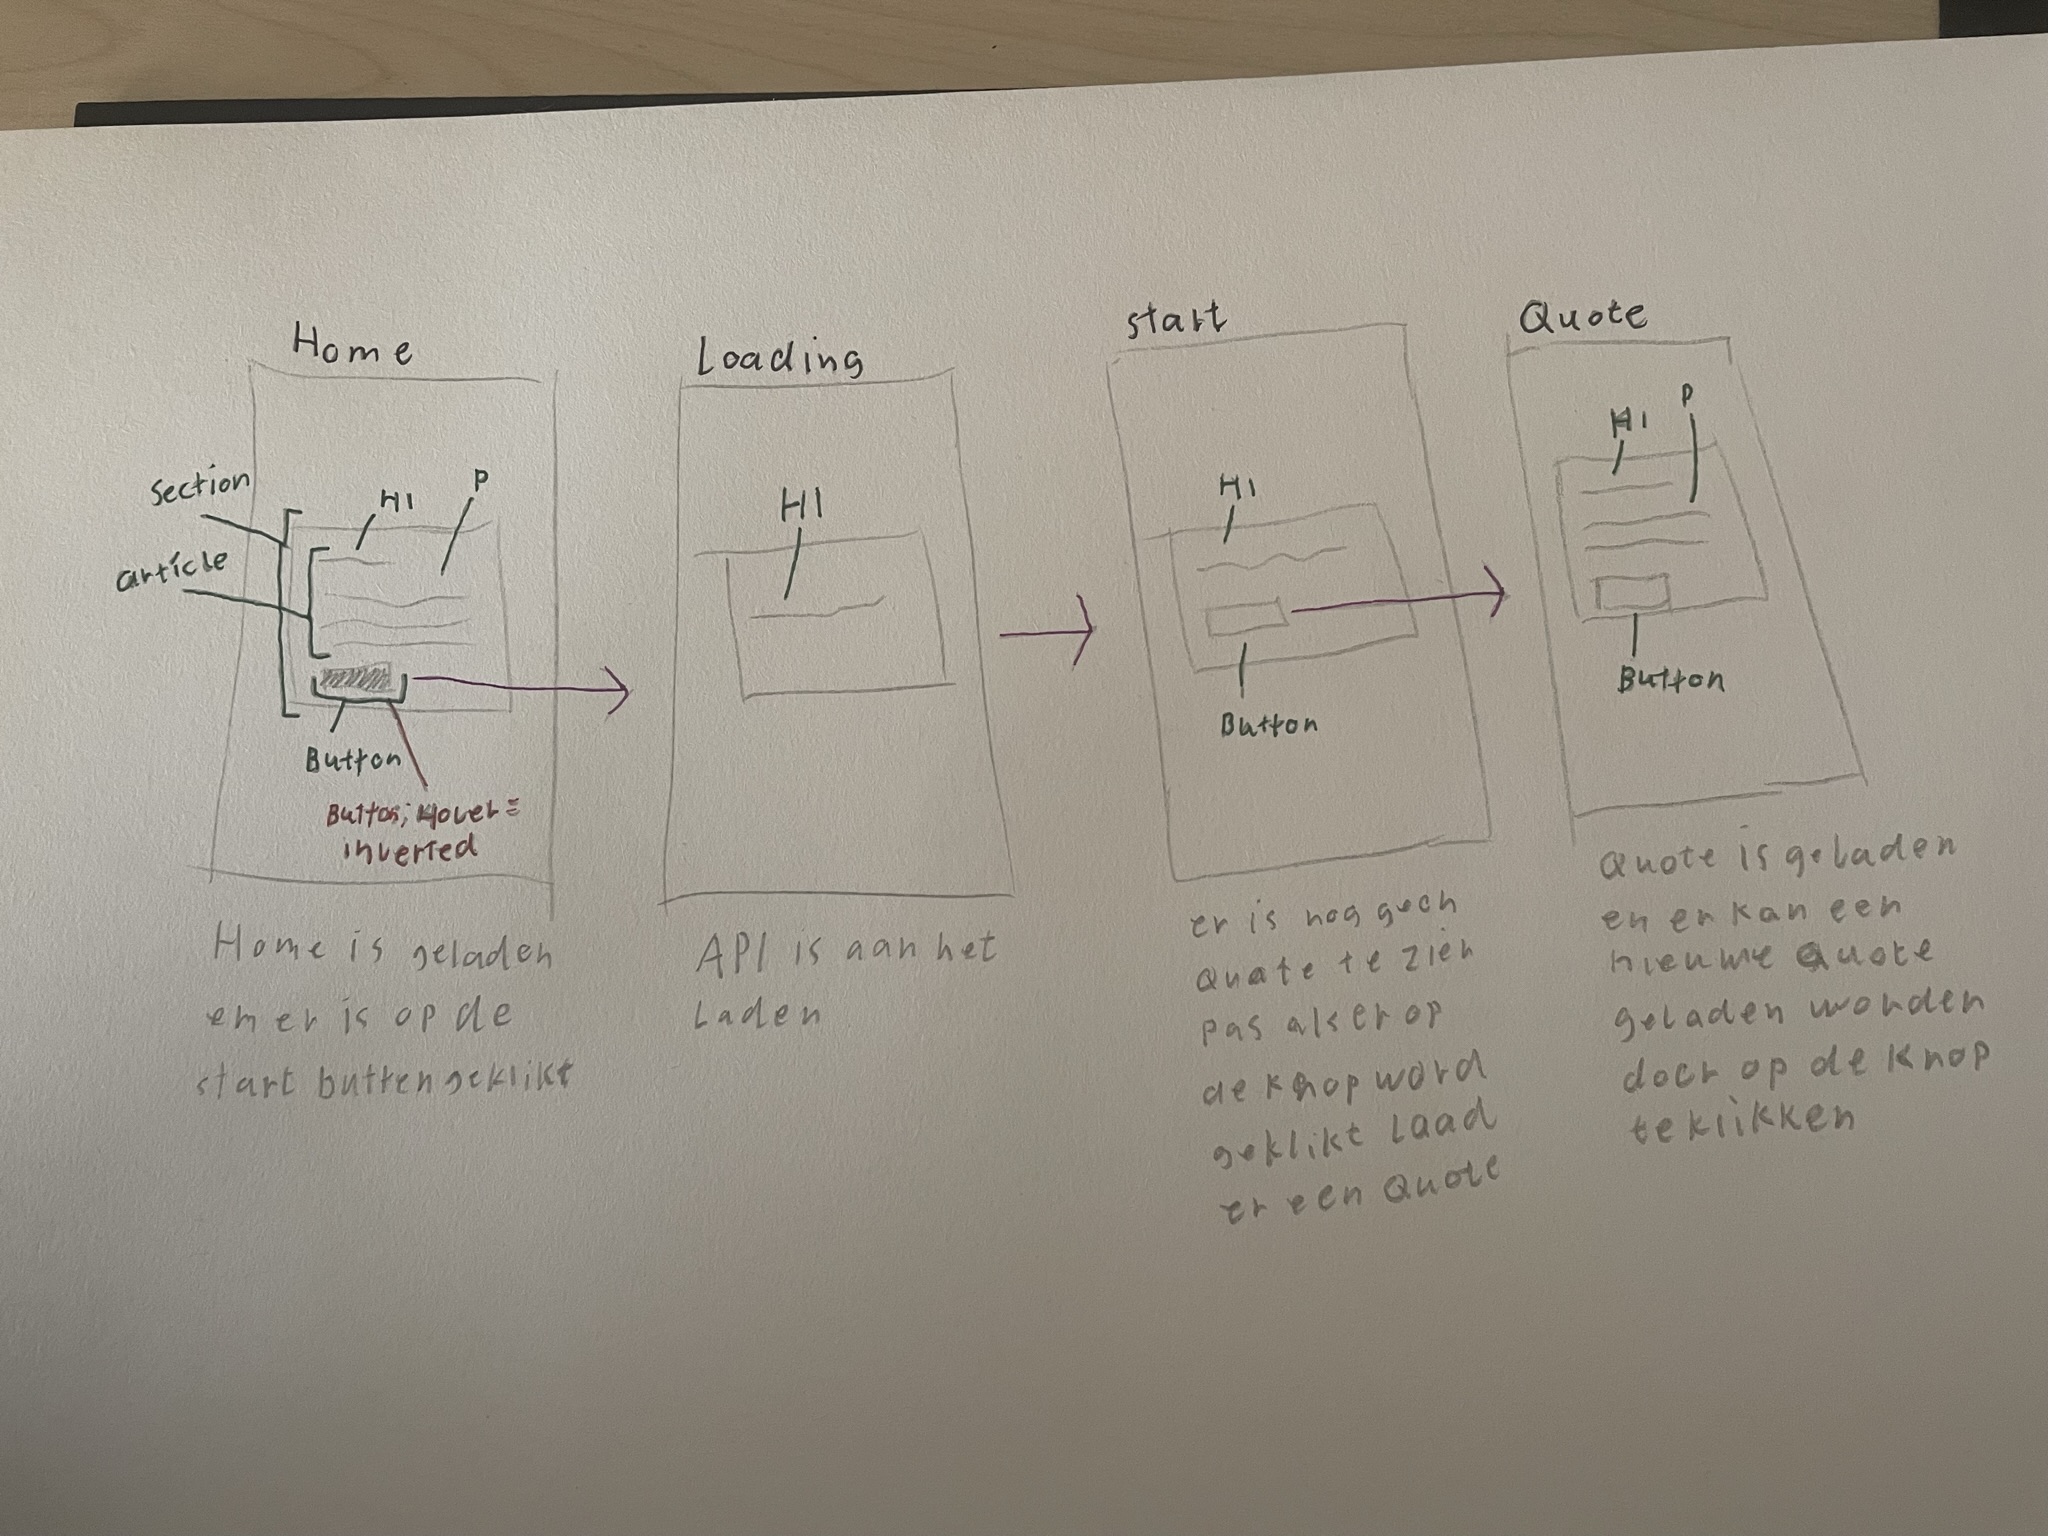 Home
Section
article
H1
P
Button
Button; Hover =
inverted
Home is geladen
en er is op de
start button geklikt
Loading
H1
API is aan het
laden
start
H1
Button
er is nog geen
Quate te zien
pas als er op
de knop word
geklikt laad
er een Quote
Quote
H1
P
Button
Quote is geladen
en er kan een
nieuwe Quote
geladen worden
door op de knop
te klikken